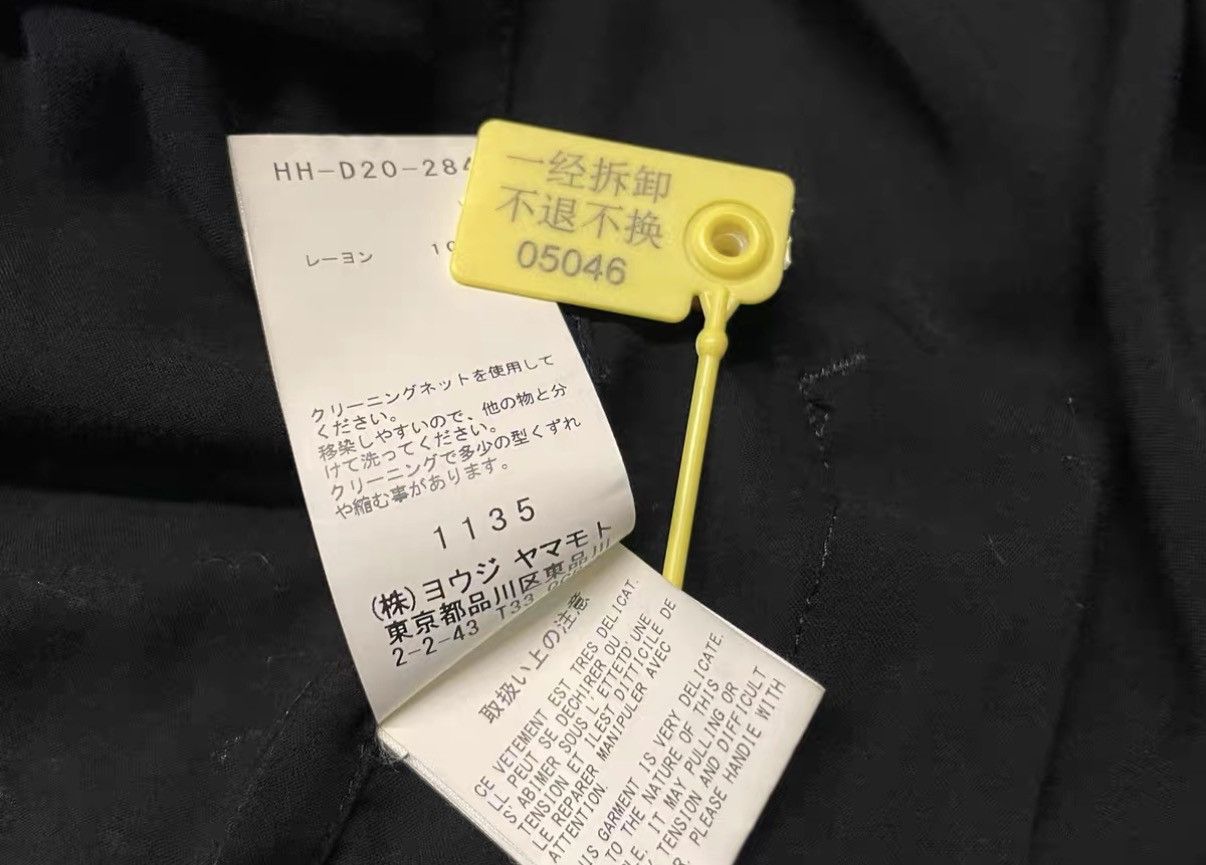 HH-D20-284
レーヨン 10
一经拆卸
不退不换
05046
クリーニングネットを使用して
ください。
移染しやすいので、他の物と分
けて洗ってください。
クリーニングで多少の型くずれ
や縮む事があります。
1135
(株)ヨウジ ヤマモト
東京都品川区東品川
2-2-43 T33
取扱い上の注意
CE VETEMENT EST TRES DELICAT.
LL PEUT SE DECHIRER OU
S'ABIMER SOUS L'ETTETD'UNE
TENSION ET ILEST DITTICILE DE
LE REPARER MANIPULER AVEC
ATTENTION.
IS GARMENT IS VERY DELICATE.
TO THE NATURE OF THIS
LE, IT MAY PULLING OR
TENSION AND DIFFICULT
R. PLEASE HANDIE WITH